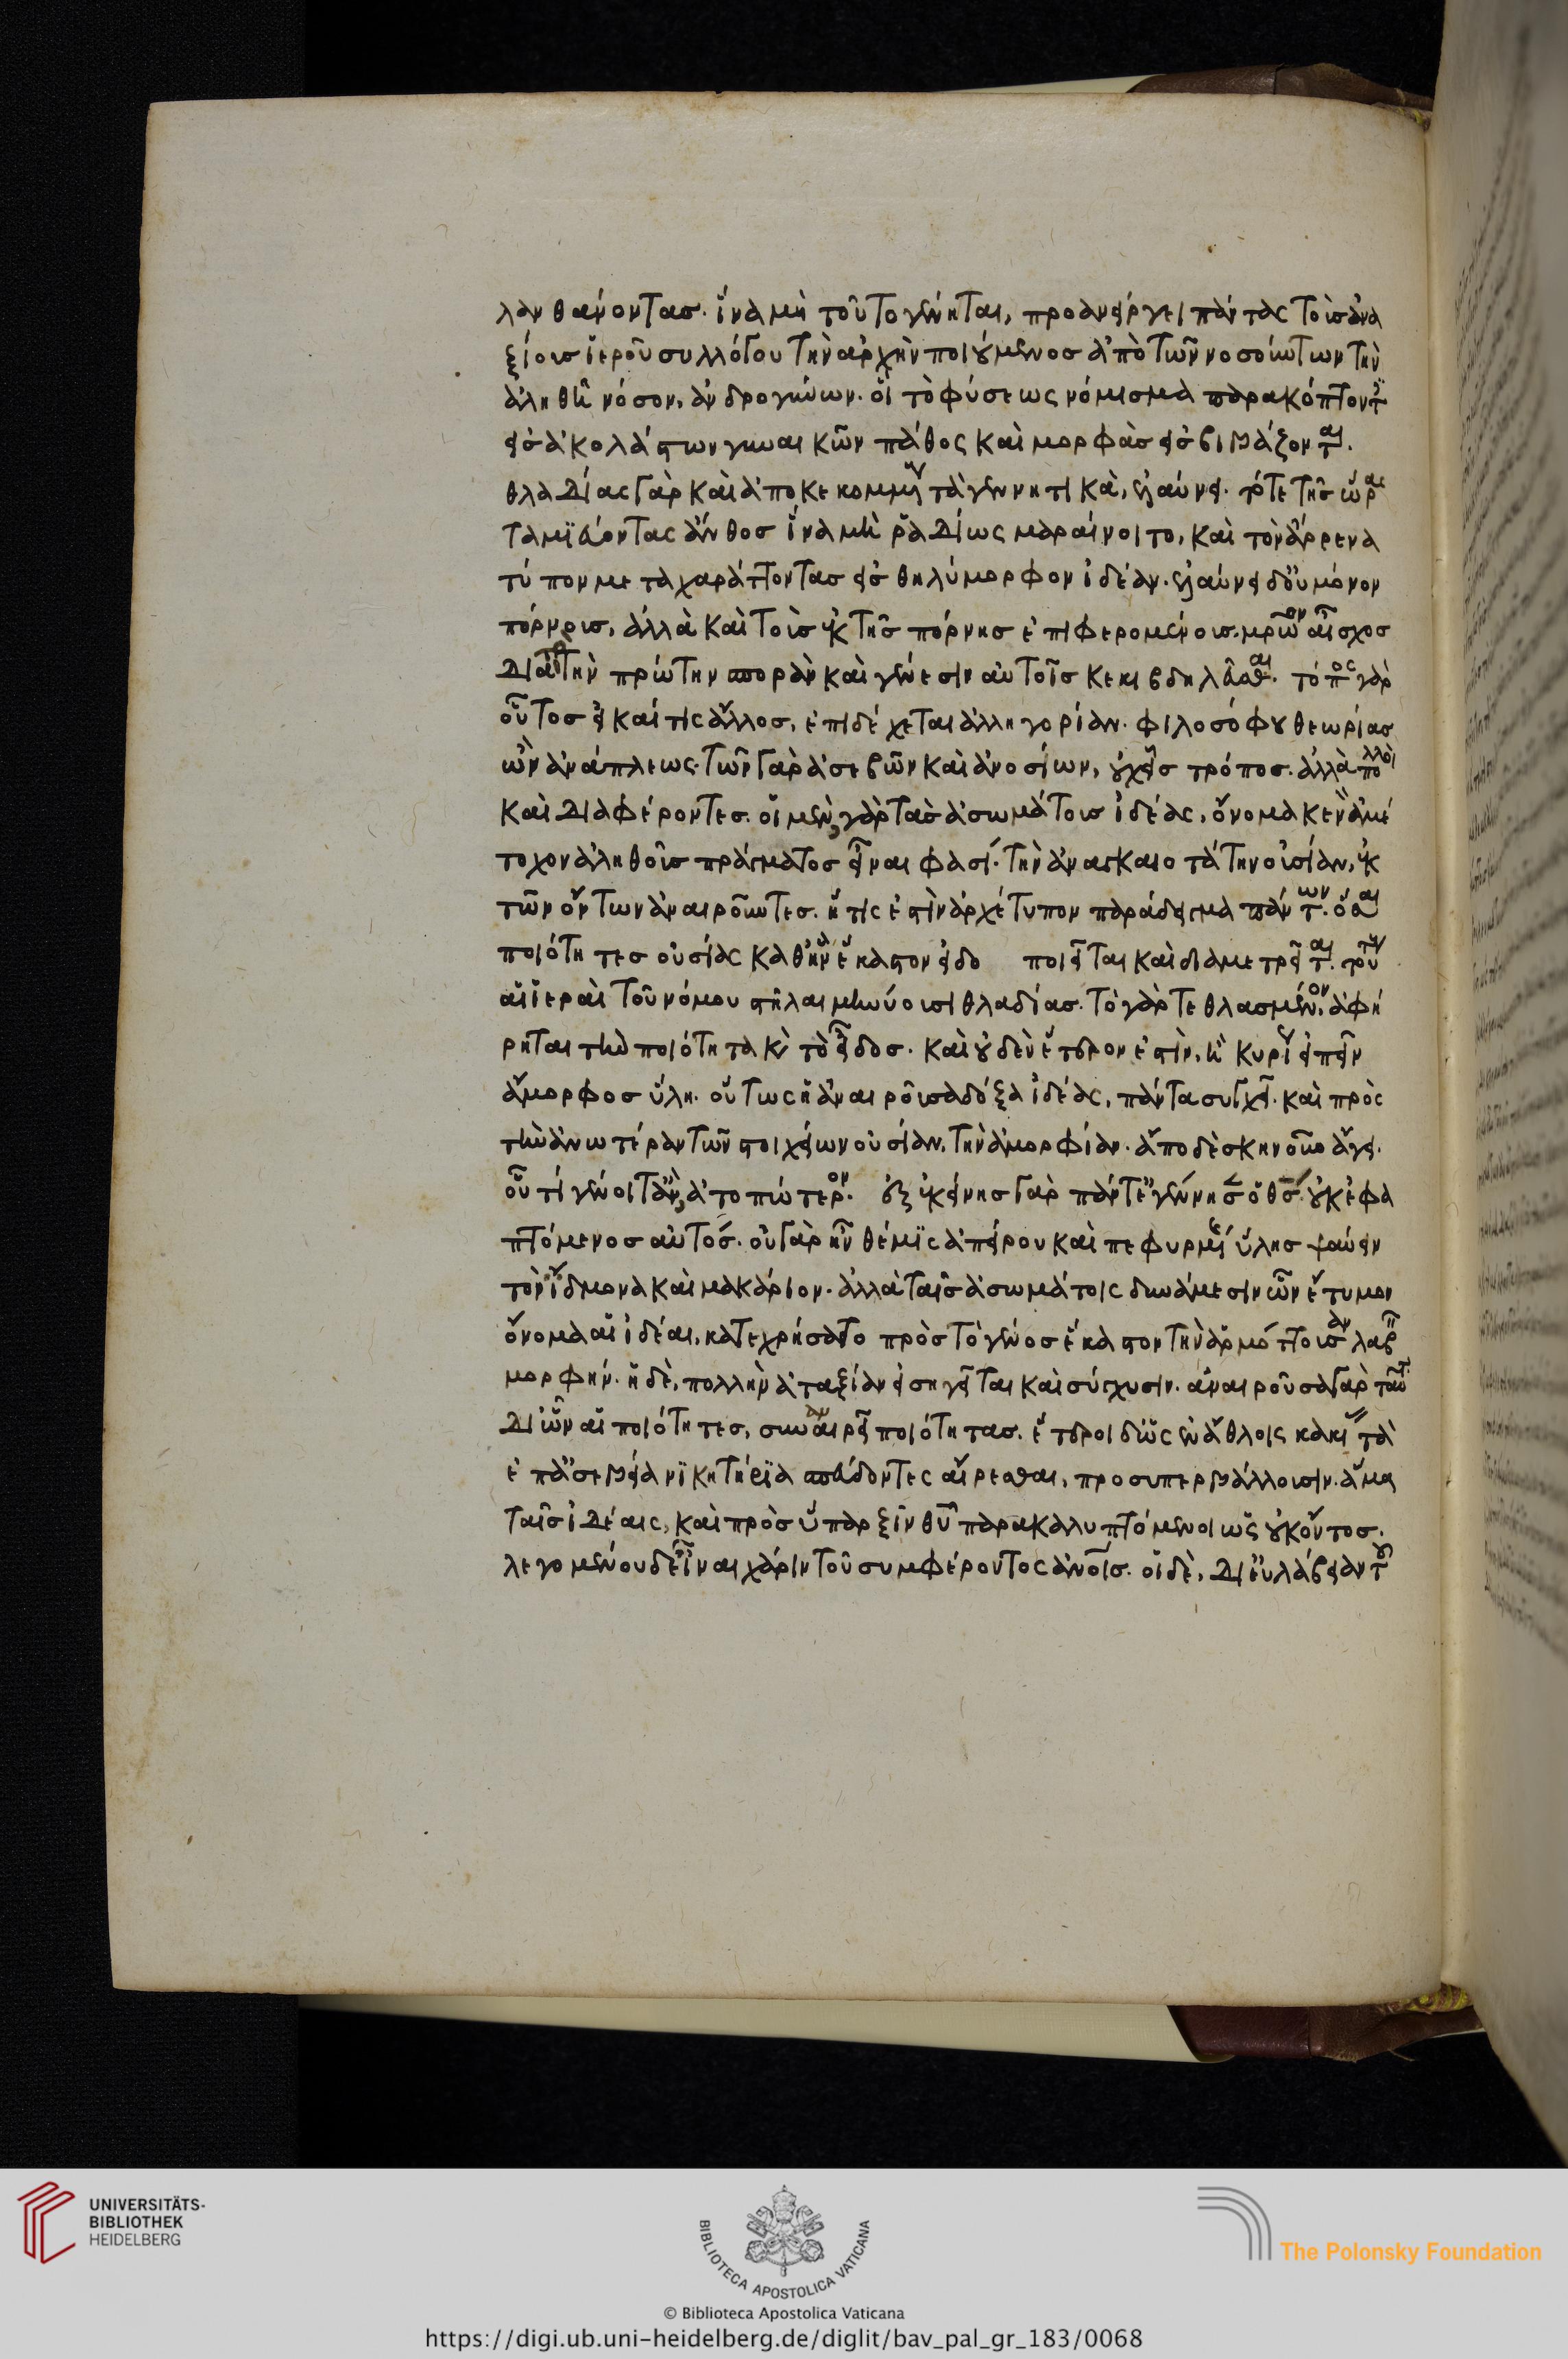 λανθάνοντας. ἵνα μὴ τοῦτο γένηται, προανείργει πάντας τοὺς ἀνα
ξίους ἱεροῦ συλλόγου τὴν ἀρχὴν ποιούμενος ἀπὸ τῶν νοσούντων τὴν
ἀληθῆ νόσον, ἀνδρογύνων. οἳ τὸ φύσεως νόμισμα παρακόπτοντες
εἰς ἀκολάστων γυναικῶν πάθος καὶ μορφὰς εἰσβιάζονται.
θλαδίας γὰρ καὶ ἀποκεκομμένους τὰ γεννητικὰ, ἐλαύνει. τό τε τῆς ὥρας
ταμιεύοντας ἄνθος ἵνα μὴ ῥᾳδίως μαραίνοιτο, καὶ τὸν ἄρρενα
τύπον μεταχαράττοντας εἰς θηλύμορφον ἰδέαν. ἐλαύνει δ' οὐ μόνον
πόρνους, ἀλλὰ καὶ τοὺς ἐκ τῆς πόρνης ἐπιφερομένους μητρῷον αἶσχος
διὰ τὸ τὴν πρώτην σπορὰν καὶ γένεσιν αὐτοῖς κεκιβδηλεῦσθαι. τόπος γὰρ
οὗτος εἰ καί τις ἄλλος, ἐπιδέχεται ἀλληγορίαν. φιλοσόφου θεωρίας
ὢν ἀνάπλεως. τῶν γὰρ ἀσεβῶν καὶ ἀνοσίων, οὐχ εἷς τρόπος. ἀλλὰ πολλοὶ
καὶ διαφέροντες. οἱ μὲν γὰρ τὰς ἀσωμάτους ἰδέας, ὄνομα κενὸν ἀμέ
τοχον ἀληθοῦς πράγματος εἶναί φασι. τὴν ἀναγκαιοτάτην οὐσίαν, ἐκ
τῶν ὄντων ἀναιροῦντες. ἥτις ἐστὶν ἀρχέτυπον παράδειγμα πάντων. ὅσαι
ποιότητες οὐσίας καθ' ἣν ἕκαστον εἰδο ποιεῖται καὶ διαμετρεῖται. τούτους
αἱ ἱεραὶ τοῦ νόμου στῆλαι μηνύουσι θλαδίας. τὸ γὰρ τεθλασμένον, ἀφῄ
ρηται τὴν ποιότητα καὶ τὸ εἶδος. καὶ οὐδὲν ἕτερον ἐστὶν, ἢ κυρίως εἰπεῖν
ἄμορφος ὕλη. οὕτως ἡ ἀναιροῦσα δόξα ἰδέας, πάντα συγχεῖ. καὶ πρὸς
τὴν ἀνωτέραν τῶν στοιχείων οὐσίαν, τὴν ἀμορφίαν. ἄποδε σκηνοῦσα ἄγει.
οὗ τί γένοιτ' ἂν, ἀτοπώτερον. ἐξ ἐκείνης γὰρ πάντ' ἐγέννησεν ὁ θεός. οὐκ ἐφα
πτόμενος αὐτός. οὐ γὰρ ἦν θέμις ἀπείρου καὶ πεφυρμένης ὕλης ψαύειν
τὸν ἴδμονα καὶ μακάριον. ἀλλὰ ταῖς ἀσωμάτοις δυνάμεσιν ὧν ἔτυμον
ὄνομα αἱ ἰδέαι, κατεχρήσατο πρὸς τὸ γένος ἕκαστον τὴν ἁρμόττουσαν λαβεῖν
μορφήν. ἡ δὲ, πολλὴν ἀταξίαν εἰσηγεῖται καὶ σύγχυσιν. ἀναιροῦσα γὰρ ταῦτα
δι' ὧν αἱ ποιότητες, συναναιρεῖ ποιότητας. ἕτεροι δ' ὡς ἐν ἄθλοις κακίας τὰ
ἐπ' ἀσεβείᾳ νικητήρια σπεύδοντες αἴρεσθαι, προσυπερβάλλουσιν. ἅμα
ταῖς ἰδέαις, καὶ πρὸς ὕπαρξιν θεοῦ παρακαλυπτόμενοι ὡς οὐκ ὄντος.
λεγομένου δὲ εἶναι χάριν τοῦ συμφέροντος ἀνθρώποις. οἱ δὲ, δι' εὐλάβειαν τοῦ
UNIVERSITÄTS-
BIBLIOTHEK
HEIDELBERG
BIBLIOTECA APOSTOLICA VATICANA
The Polonsky Foundation
© Biblioteca Apostolica Vaticana
https://digi.ub.uni-heidelberg.de/diglit/bav_pal_gr_183/0068